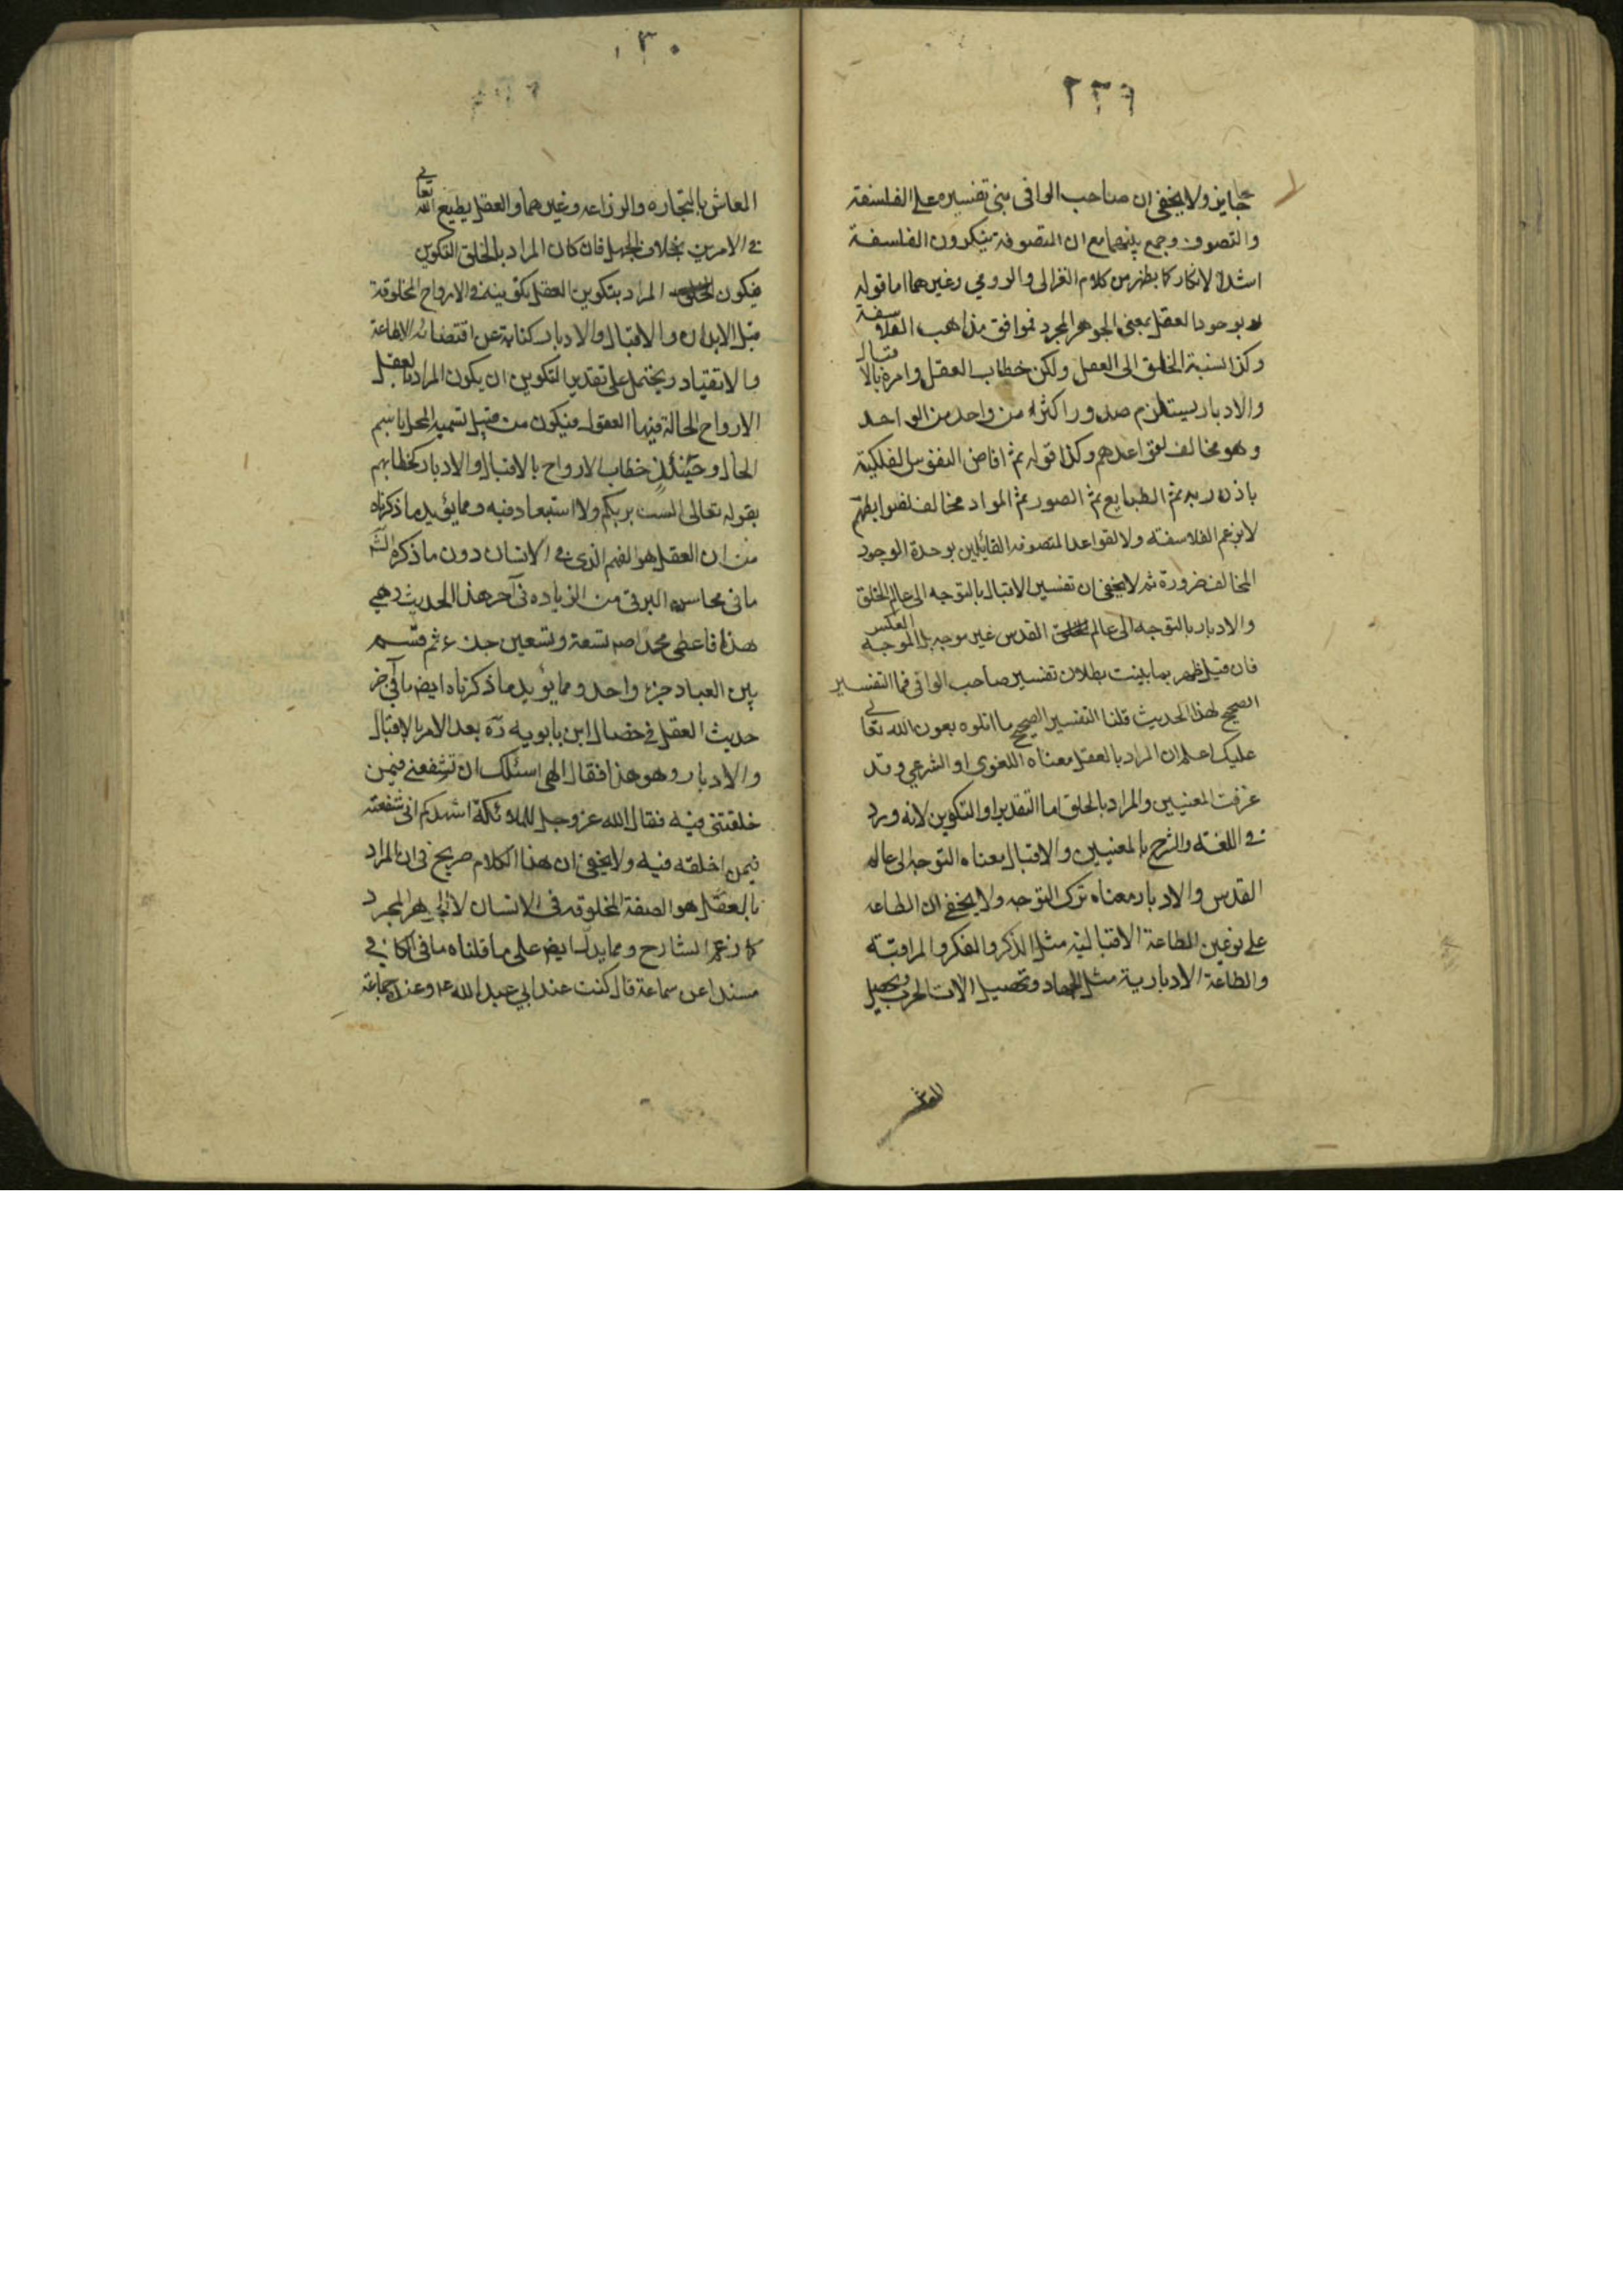 ٢٣٩
جايز ولا يخفى ان صاحب الوافى بنى تفسيره على الفلسفة
والتصوف وجمع بينهما مع ان المتصوفة ينكرون الفلسفة
اشد الانكار كما يظهر من كلام الغزالى والرومي وغيرهما اما قوله
بوجود العقل بمعنى الجوهر المجرد فموافق مذاهب الفلاسفة
وكذا نسبة الخلق الى العقل ولكن خطاب العقل وامره بالاقبال
والادبار يستلزم صدور اكثر من واحد من الواحد
وهو مخالف لقواعدهم وكذا قوله ثم افاض النفوس الفلكية
باذن ربه ثم الطبايع ثم الصور ثم المواد مخالف لضوابطهم
لا بزعم الفلاسفة ولا لقواعد المتصوفه القايلين بوحدة الوجود
المخالف ضرورة ثم لا يخفى ان تفسير الاقبال بالتوجه الى عالم الخلق
والادبار بالتوجه الى عالم القدس غير موجه بل الموجه العكس
فان قيل ظهر بما بينت بطلان تفسير صاحب الوافى فما التفسير
الصحيح لهذا الحديث قلنا التفسير الصحيح ما اتلوه بعون الله تعالى
عليك اعلم ان المراد بالعقل معناه اللغوى او الشرعي وقد
عرفت المعنيين والمراد بالخلق اما التقدير او التكوين لانه ورد
فى اللغة والشرع بالمعنيين والاقبال معناه التوجه الى عالم
القدس والادبار معناه ترك التوجه ولا يخفى ان الطاعه
على نوعين الطاعة الاقبالية مثل الذكر والفكر والمراقبة
والطاعة الادبارية مثل الجهاد وتحصيل الات الحرب وتحصيل
٣٠
المعاش بالتجاره والزراعه وغيرهما والعقل يطيع الله تعالى
فى الامرين بخلاف الجهل فان كان المراد بالخلق التكوين
فيكون المراد بتكوين العقل تكوينه فى الارواح المخلوقة
قبل الابدان والاقبال والادبار كناية عن اقتضائه الاطاعة
والانقياد ويحتمل على تقدير التكوين ان يكون المراد بالعقل
الارواح الحالة فيها العقول فيكون من قبيل تسميه المحل باسم
الحال وحينئذ خطاب الارواح بالاقبال والادبار كخطابهم
بقوله تعالى الست بربكم ولا استبعاد فيه ومما يؤيد ما ذكرناه
من ان العقل هو الفهم الذى فى الانسان دون ما ذكره الش
ما فى محاسن البرقى من الزياده فى آخر هذا الحديث وهي
هذا فاعطى محمدا ص تسعة وتسعين جزء ثم قسم
بين العباد جزء واحد ومما يؤيد ما ذكرناه ايض ما فى آخر
حديث العقل فى خصال ابن بابويه ره بعد الامر بالاقبال
والادبار وهو هذا فقال الهى اسئلك ان تشفعنى فيمن
خلقتنى فيه فقال الله عز وجل للملائكة اشهدكم انى شفعته
فيمن اخلقه فيه ولا يخفى ان هذا الكلام صريح فى ان المراد
بالعقل هو الصفة المخلوقه فى الانسان لا الجوهر المجرد
كما زعم الشارح ومما يدل ايض على ما قلناه ما فى الكافى
مسندا عن سماعة قال كنت عند ابي عبد الله ع وعنده جماعة